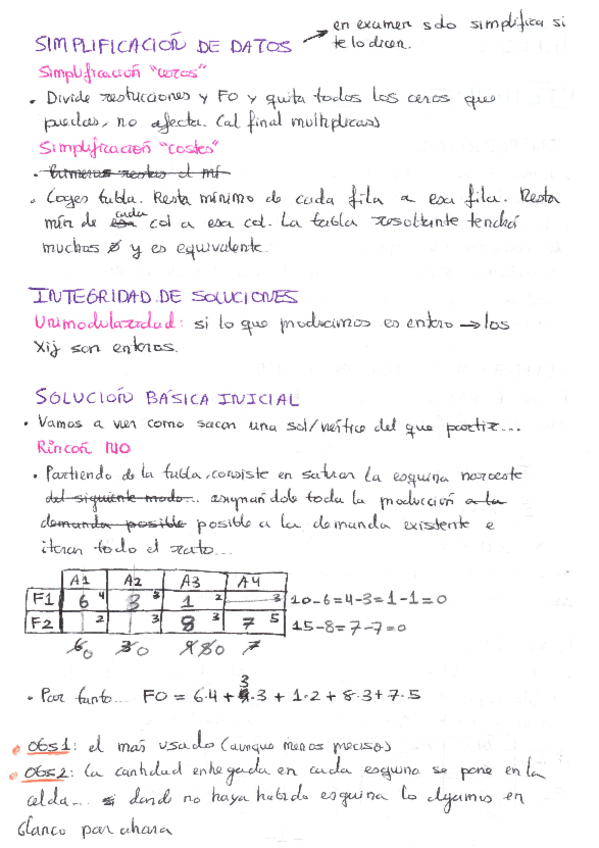 en examen solo simplifica si
te lo dicen.
SIMPLIFICACIÓN DE DATOS
Simplificación "ceros"
• Divide restricciones y FO y quita todos los ceros que
puedas, no afecta. (al final multiplicas)
Simplificación "costes"
• Primeros restas el mí
• Coges tabla. Resta mínimo de cada fila a esa fila. Resta
mín de cada col a esa col. La tabla resultante tendrá
muchos 0 y es equivalente.
INTEGRIDAD DE SOLUCIONES
Unimodularidad: si lo que producimos es entero → los
Xij son enteros.
SOLUCIÓN BÁSICA INICIAL
• Vamos a ver como sacar una sol/vértice del que partir...
Rincón NO
• Partiendo de la tabla, consiste en saturar la esquina noroeste
del siguiente modo... asignándole toda la producción a la
demanda posible posible a la demanda existente e
iterar todo el rato...
A1 A2 A3 A4
F1 6 4 3 3 1 2 3 10-6=4-3=1-1=0
F2 2 3 8 3 7 5 15-8=7-7=0
6 0 3 0 9 8 0 7
• Por tanto... FO = 6·4 + 3·3 + 1·2 + 8·3 + 7·5
• Obs1: el más usado (aunque menos preciso)
• Obs2: La cantidad entregada en cada esquina se pone en la
celda... si donde no haya habido esquina lo dejamos en
blanco por ahora